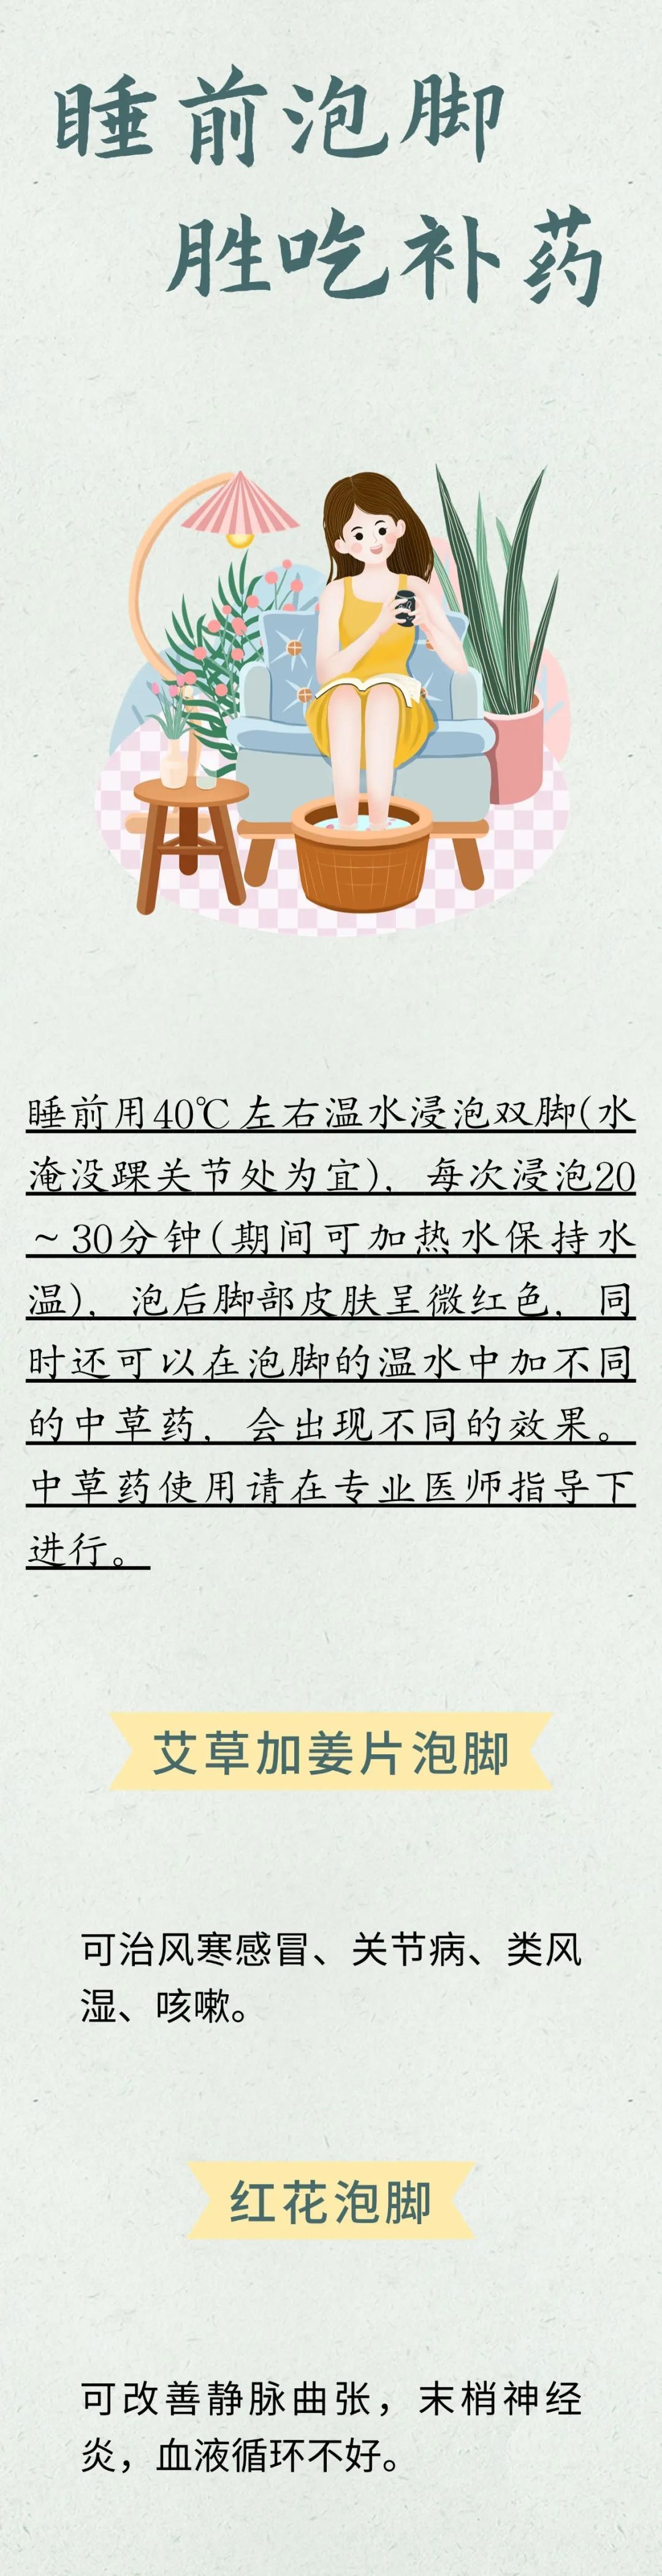 睡前泡脚
胜吃补药
睡前用40℃左右温水浸泡双脚(水
淹没踝关节处为宜)，每次浸泡20
~30分钟(期间可加热水保持水
温)，泡后脚部皮肤呈微红色，同
时还可以在泡脚的温水中加不同
的中草药，会出现不同的效果。
中草药使用请在专业医师指导下
进行。
艾草加姜片泡脚
可治风寒感冒、关节病、类风
湿、咳嗽。
红花泡脚
可改善静脉曲张，末梢神经
炎，血液循环不好。